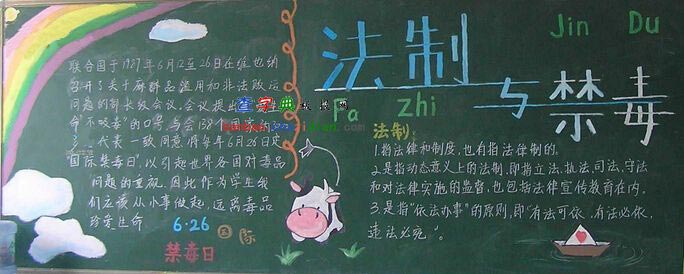 联合国于1987年6月12至26日在维也纳
召开了关于麻醉品滥用和非法贩运
问题的部长级会议,会议提出
命,不吸毒"的口号,与会138个国家
代表一致同意将每年6月26日定
"国际禁毒日",以引起世界各国对毒品
问题的重视。因此作为学生我
们应该从小事做起,远离毒品
珍爱生命
6·26
国际
禁毒日
Jin Du
法制
与禁毒
Fa zhi
查字典
法制:
1.指法律和制度,也有指法律制的。
2.是指动态意义上的法制,即指立法、执法、司法、守法
和对法律实施的监督,也包括法律宣传教育在内。
3.是指"依法办事"的原则,即"有法可依,有法必依,
违法必究"。